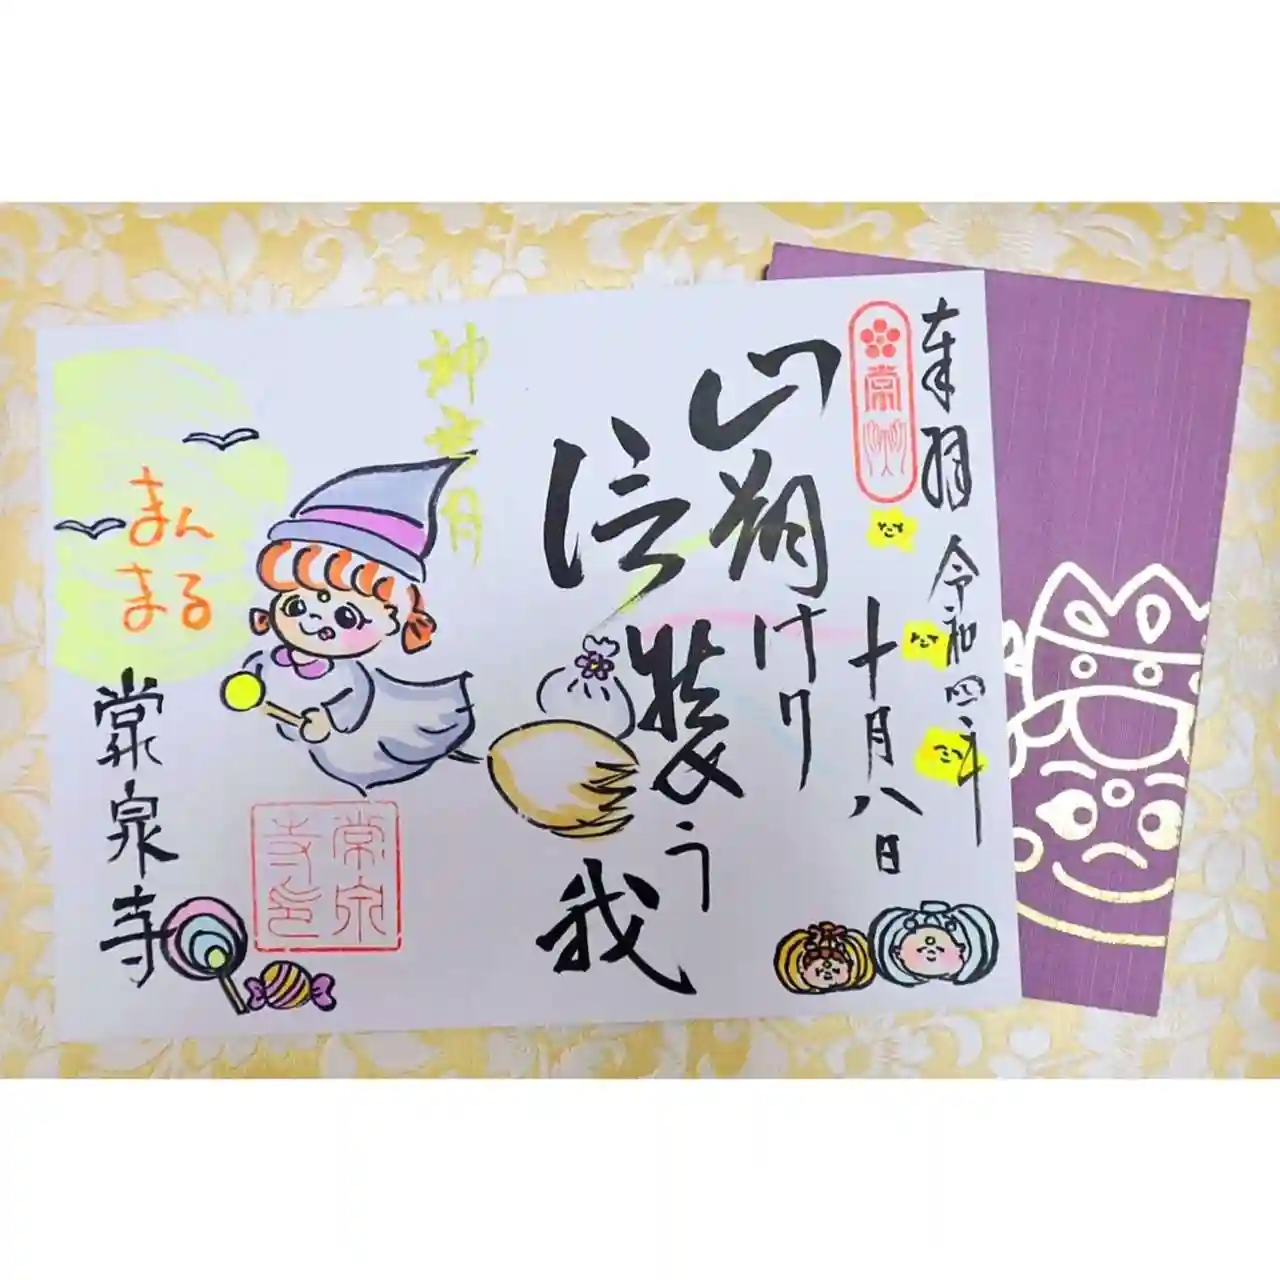 奉拝
令和四年
十月八日
常州
山朔けり
装う
我
神無月
まん
まる
常泉寺
常泉
寺印